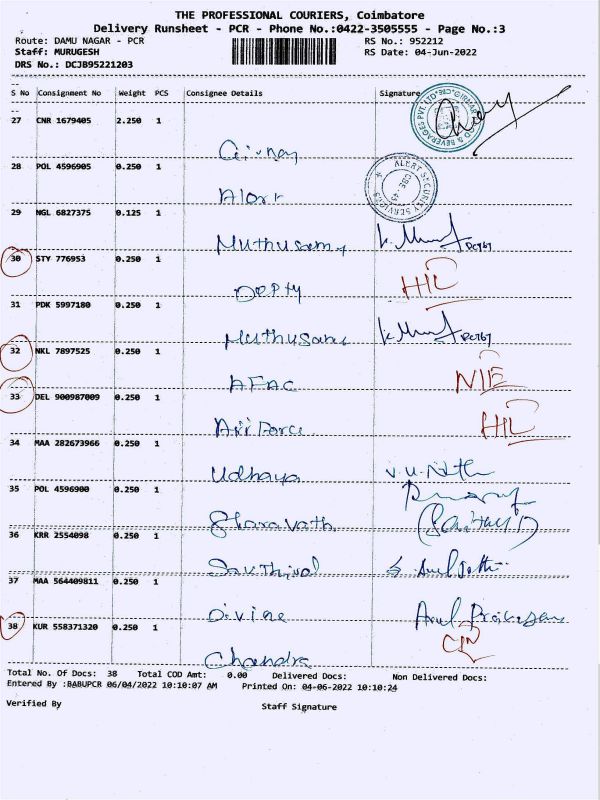 THE PROFESSIONAL COURIERS, Coimbatore
Delivery Runsheet - PCR - Phone No.:0422-3505555 - Page No.:3
Route: DAMU NAGAR - PCR RS No.: 952212
Staff: MURUGESH RS Date: 04-Jun-2022
DRS No.: DCJB95221203
S No Consignment No Weight PCS Consignee Details Signature
27 CNR 1679405 2.250 1
28 POL 4596905 0.250 1
Alert
ALERT SECURITY SERVICES
29 NGL 6827375 0.125 1
Muthusamy
30 STY 776953 0.250 1
Deepty HID
31 PDK 5997180 0.250 1
Muthusamy
32 NKL 7897525 0.250 1
AFAC NIE
33 DEL 900987009 0.250 1
Air Force HID
34 MAA 282673966 0.250 1
Udhaya V.U.Nath
35 POL 4596900 0.250 1
Sharavath
36 KRR 2554098 0.250 1
Sakthivel
37 MAA 564409811 0.250 1
Divine
38 KUR 558371320 0.250 1
Chandra
Total No. Of Docs: 38 Total COD Amt: 0.00 Delivered Docs: Non Delivered Docs:
Entered By :BABUPCR 06/04/2022 10:10:07 AM Printed On: 04-06-2022 10:10:24
Verified By Staff Signature